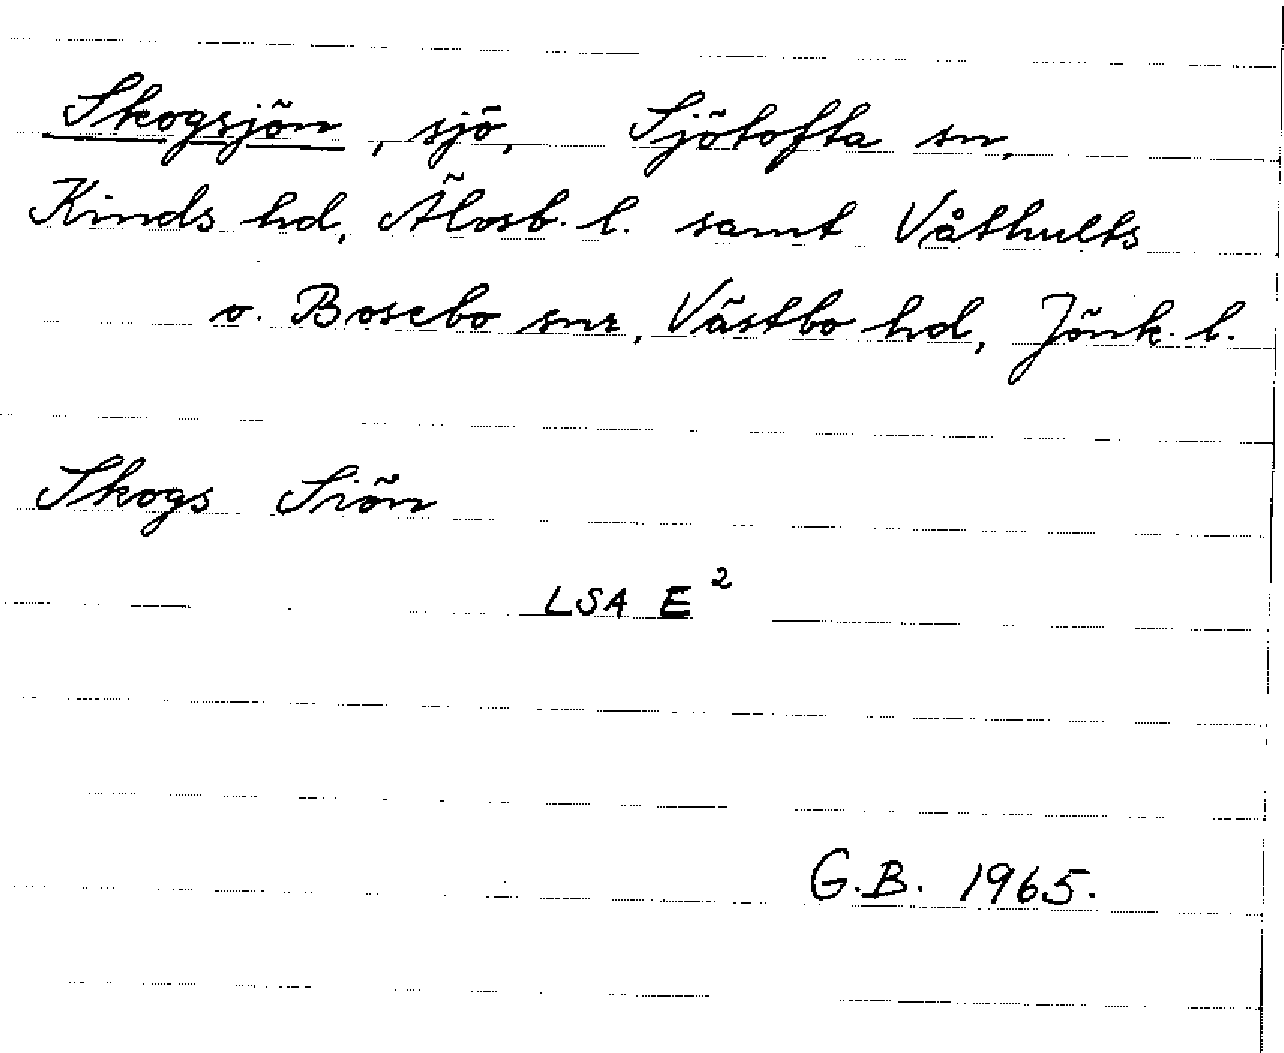 Skogsjön, sjö, Sjötofta sn,
Kinds hd, Älvsb. l. samt Våthults
o. Bosebo snr, Västbo hd, Jönk. l.
Skogs Siön
LSA E²
G.B. 1965.